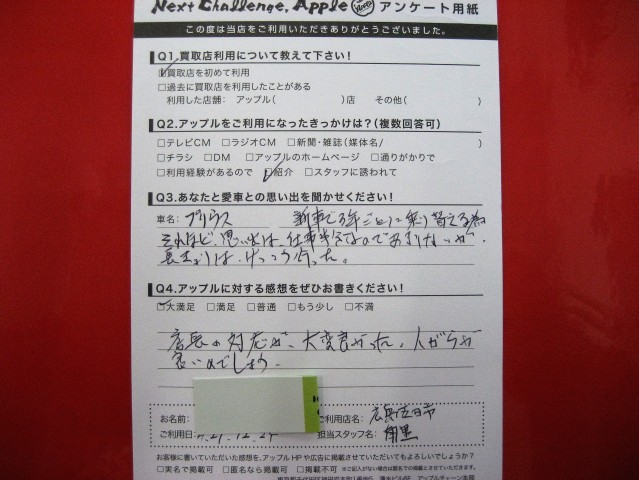 Next Challenge, Apple アンケート用紙
この度は当店をご利用いただきありがとうございました。
Q1.買取店利用について教えて下さい!
☑買取店を初めて利用
□過去に買取店を利用したことがある
利用した店舗: アップル( )店 その他( )
Q2.アップルをご利用になったきっかけは?(複数回答可)
□テレビCM □ラジオCM □新聞・雑誌(媒体名/ )
□チラシ □DM □アップルのホームページ □通りがかりで
□利用経験があるので ☑紹介 □スタッフに誘われて
Q3.あなたと愛車との思い出を聞かせください!
車名: プリウス 新車で3年ごとに乗り替える為
それほど、思い出は、仕事
長さよりは、けっこう
Q4.アップルに対する感想をぜひお書きください!
☑大満足 □満足 □普通 □もう少し □不満
店長の対応が、大変良かった。人がらが
良いのでしょう。
お名前 ご利用店名: 広島五日市
ご利用日 H.21.12.24 担当スタッフ名:
お客様に書いていただいた感想を、アップルHPや広告に掲載させていただいてもよろしいでしょうか?
□実名で掲載可 □匿名なら掲載可 □掲載不可 ※ご記入がない場合は匿名での掲載とさせていただきます。